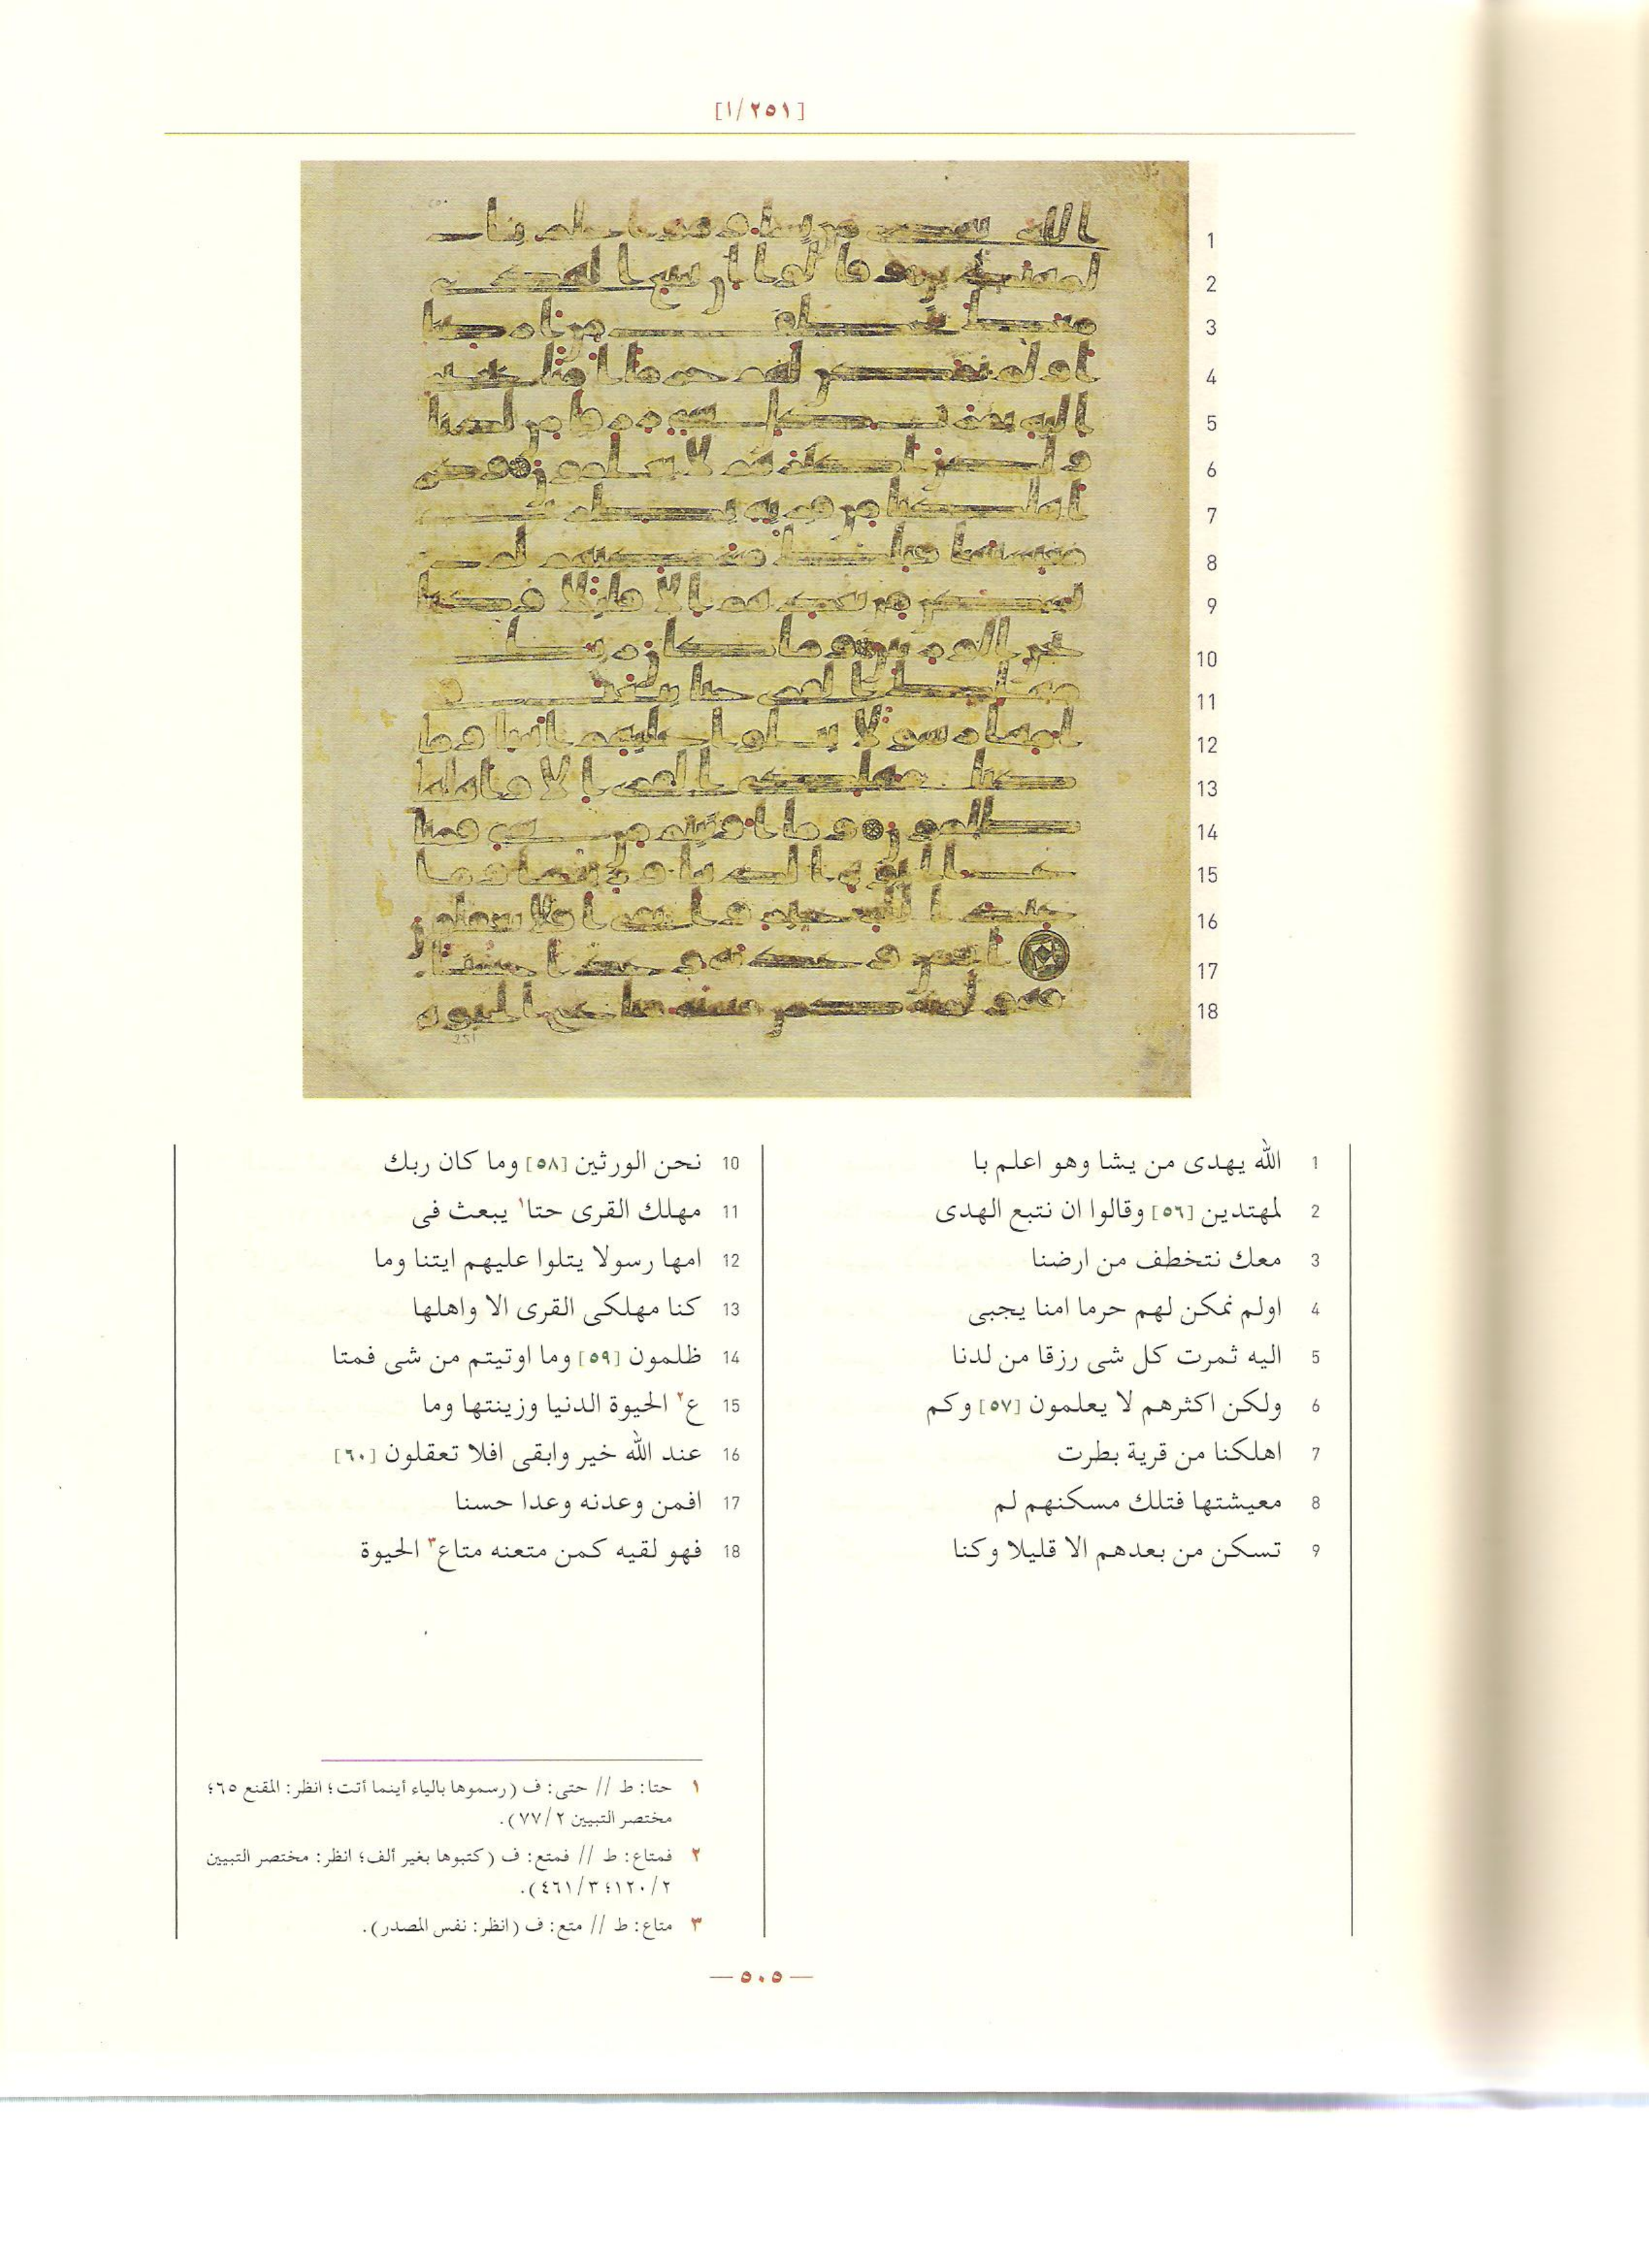 [٢٥١/١]
1 الله يهدى من يشا وهو اعلم با
2 لمهتدين [٥٦] وقالوا ان نتبع الهدى
3 معك نتخطف من ارضنا
4 اولم نمكن لهم حرما امنا يجبى
5 اليه ثمرت كل شى رزقا من لدنا
6 ولكن اكثرهم لا يعلمون [٥٧] وكم
7 اهلكنا من قرية بطرت
8 معيشتها فتلك مسكنهم لم
9 تسكن من بعدهم الا قليلا وكنا
10 نحن الورثين [٥٨] وما كان ربك
11 مهلك القرى حتا١ يبعث فى
12 امها رسولا يتلوا عليهم ايتنا وما
13 كنا مهلكى القرى الا واهلها
14 ظلمون [٥٩] وما اوتيتم من شى فمتا
15 ع٢ الحيوة الدنيا وزينتها وما
16 عند الله خير وابقى افلا تعقلون [٦٠]
17 افمن وعدنه وعدا حسنا
18 فهو لقيه كمن متعنه متاع٣ الحيوة
١ حتا: ط // حتى: ف (رسموها بالياء أينما أتت؛ انظر: المقنع ٦٥؛
مختصر التبيين ٧٧/٢).
٢ فمتاع: ط // فمتع: ف (كتبوها بغير ألف؛ انظر: مختصر التبيين
١٢٠/٢؛ ٤٦١/٣).
٣ متاع: ط // متع: ف (انظر: نفس المصدر).
— ٥٠٥ —